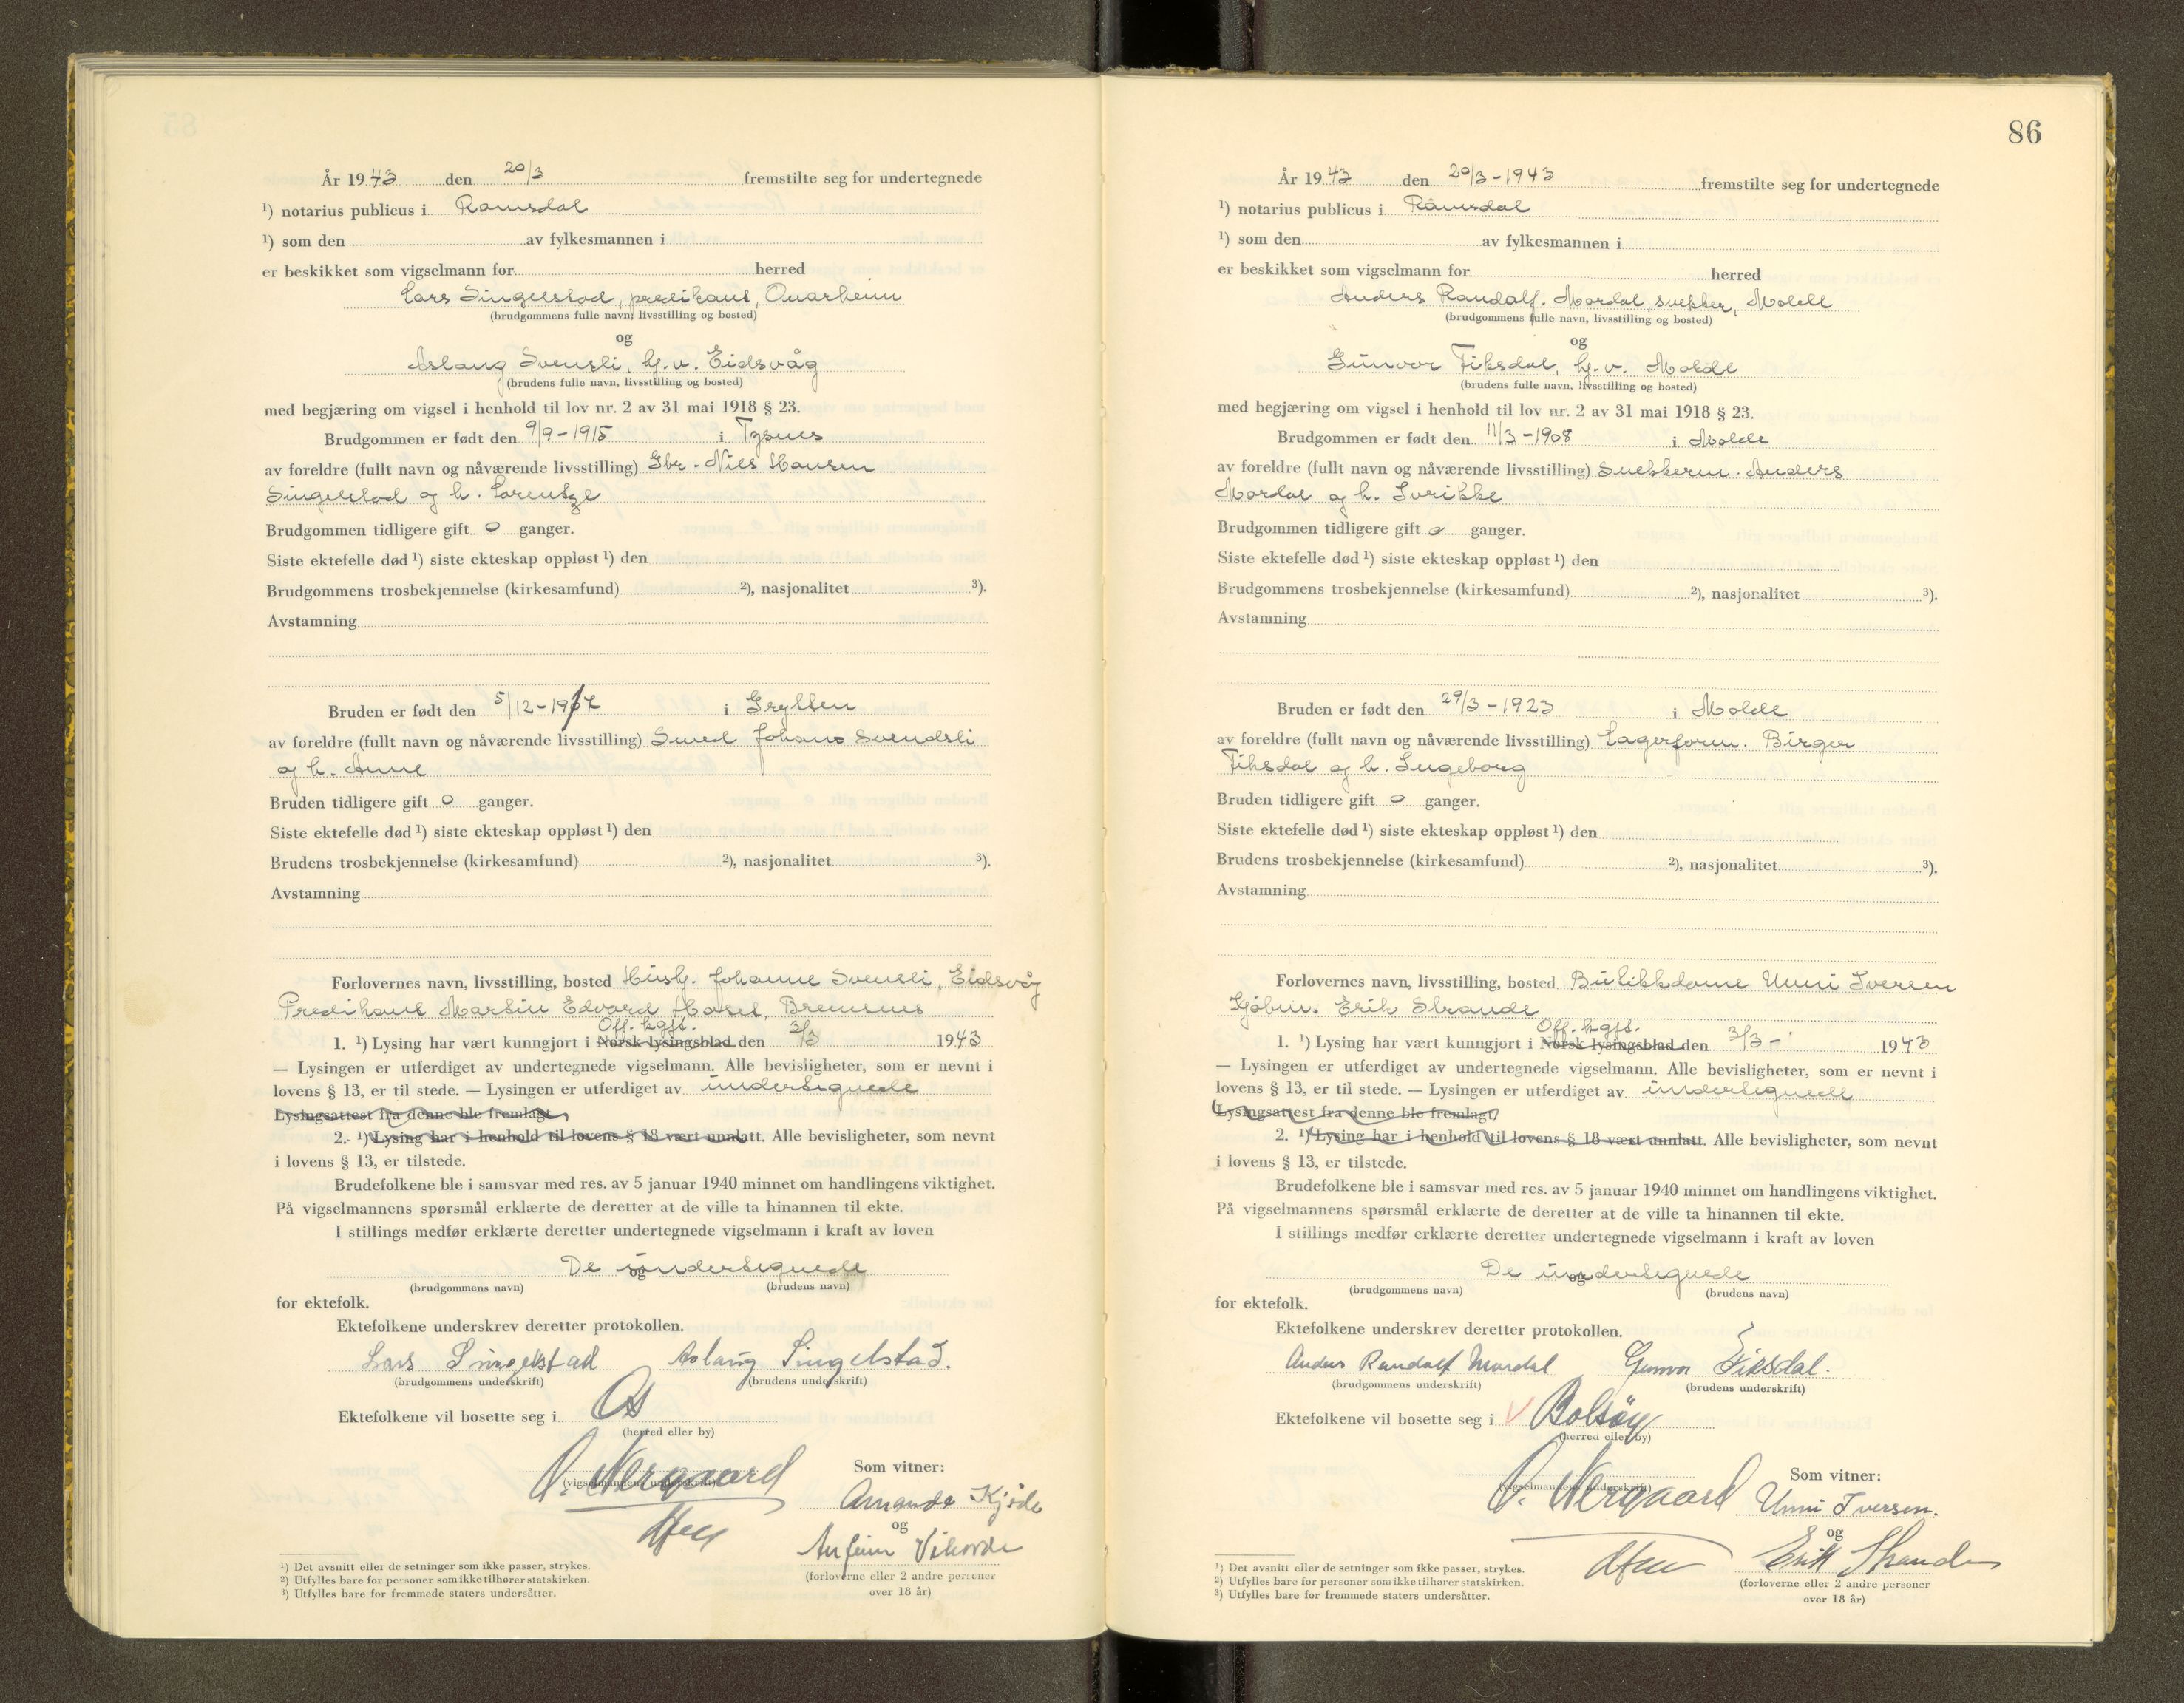 År 1943 den 20/3 fremstilte seg for undertegnede
¹) notarius publicus i Romsdal
¹) som den av fylkesmannen i
er beskikket som vigselmann for herred
Lars Singelstad, predikant, Onarheim
(brudgommens fulle navn, livsstilling og bosted)
og
Aslaug Svensli, hj.v. Eidsvåg
(brudens fulle navn, livsstilling og bosted)
med begjæring om vigsel i henhold til lov nr. 2 av 31 mai 1918 § 23.
Brudgommen er født den 9/9-1915 i Tysnes
av foreldre (fullt navn og nåværende livsstilling) Gbr. Nils Hansen
Singelstad og h. Lorentze
Brudgommen tidligere gift 0 ganger.
Siste ektefelle død ¹) siste ekteskap oppløst ¹) den
Brudgommens trosbekjennelse (kirkesamfund) ²), nasjonalitet ³).
Avstamning
Bruden er født den 5/12-1917 i Grytten
av foreldre (fullt navn og nåværende livsstilling) Smed Johans Svendsli
og h. Anne
Bruden tidligere gift 0 ganger.
Siste ektefelle død ¹) siste ekteskap oppløst ¹) den
Brudens trosbekjennelse (kirkesamfund) ²), nasjonalitet ³).
Avstamning
Forlovernes navn, livsstilling, bosted Hush. Johanne Svensli, Eidsvåg
Predikant Martin Edvard Hasel, Bremsnes
Off. kgjt.
1. ¹) Lysing har vært kunngjort i Norsk lysingsblad den 3/3 1943
— Lysingen er utferdiget av undertegnede vigselmann. Alle bevisligheter, som er nevnt i
lovens § 13, er til stede. — Lysingen er utferdiget av undertegnede
Lysingsattest fra denne ble fremlagt.
2. ¹) Lysing har i henhold til lovens § 18 vært unnlatt. Alle bevisligheter, som nevnt
i lovens § 13, er tilstede.
Brudefolkene ble i samsvar med res. av 5 januar 1940 minnet om handlingens viktighet.
På vigselmannens spørsmål erklærte de deretter at de ville ta hinannen til ekte.
I stillings medfør erklærte deretter undertegnede vigselmann i kraft av loven
De undertegnede
og
(brudgommens navn) (brudens navn)
for ektefolk.
Ektefolkene underskrev deretter protokollen.
Lars Singelstad Aslaug Singelstad.
(brudgommens underskrift) (brudens underskrift)
Ektefolkene vil bosette seg i Os
(herred eller by)
O. Nergaard
(vigselmannens underskrift)
Som vitner:
Amanda Kjöde
og
Anfinn Vihovde
(forloverne eller 2 andre personer
over 18 år)
¹) Det avsnitt eller de setninger som ikke passer, strykes.
²) Utfylles bare for personer som ikke tilhører statskirken.
³) Utfylles bare for fremmede staters undersåtter.
86
År 1943 den 20/3-1943 fremstilte seg for undertegnede
¹) notarius publicus i Romsdal
¹) som den av fylkesmannen i
er beskikket som vigselmann for herred
Anders Randolf. Mordal, snekker, Molde
(brudgommens fulle navn, livsstilling og bosted)
og
Gunvor Fiksdal, hj.v. Molde
(brudens fulle navn, livsstilling og bosted)
med begjæring om vigsel i henhold til lov nr. 2 av 31 mai 1918 § 23.
Brudgommen er født den 11/3-1908 i Molde
av foreldre (fullt navn og nåværende livsstilling) Snekkerm. Anders
Mordal og h.
Brudgommen tidligere gift 0 ganger.
Siste ektefelle død ¹) siste ekteskap oppløst ¹) den
Brudgommens trosbekjennelse (kirkesamfund) ²), nasjonalitet ³).
Avstamning
Bruden er født den 29/3-1923 i Molde
av foreldre (fullt navn og nåværende livsstilling) Lagerform. Birger
Fiksdal og h. Ingeborg
Bruden tidligere gift 0 ganger.
Siste ektefelle død ¹) siste ekteskap oppløst ¹) den
Brudens trosbekjennelse (kirkesamfund) ²), nasjonalitet ³).
Avstamning
Forlovernes navn, livsstilling, bosted Butikkdame Unni Iversen
Kjøbm. Erik Strande
Off. kgjt.
1. ¹) Lysing har vært kunngjort i Norsk lysingsblad den 3/3- 1943
— Lysingen er utferdiget av undertegnede vigselmann. Alle bevisligheter, som er nevnt i
lovens § 13, er til stede. — Lysingen er utferdiget av undertegnede
Lysingsattest fra denne ble fremlagt.
2. ¹) Lysing har i henhold til lovens § 18 vært unnlatt. Alle bevisligheter, som nevnt
i lovens § 13, er tilstede.
Brudefolkene ble i samsvar med res. av 5 januar 1940 minnet om handlingens viktighet.
På vigselmannens spørsmål erklærte de deretter at de ville ta hinannen til ekte.
I stillings medfør erklærte deretter undertegnede vigselmann i kraft av loven
De undertegnede
og
(brudgommens navn) (brudens navn)
for ektefolk.
Ektefolkene underskrev deretter protokollen.
Anders Randolf Mordal Gunvor Fiksdal.
(brudgommens underskrift) (brudens underskrift)
Ektefolkene vil bosette seg i V Bolsöy
(herred eller by)
O. Nergaard
(vigselmannens underskrift)
Som vitner:
Unni Iversen.
og
Erik Strande
(forloverne eller 2 andre personer
over 18 år)
¹) Det avsnitt eller de setninger som ikke passer, strykes.
²) Utfylles bare for personer som ikke tilhører statskirken.
³) Utfylles bare for fremmede staters undersåtter.